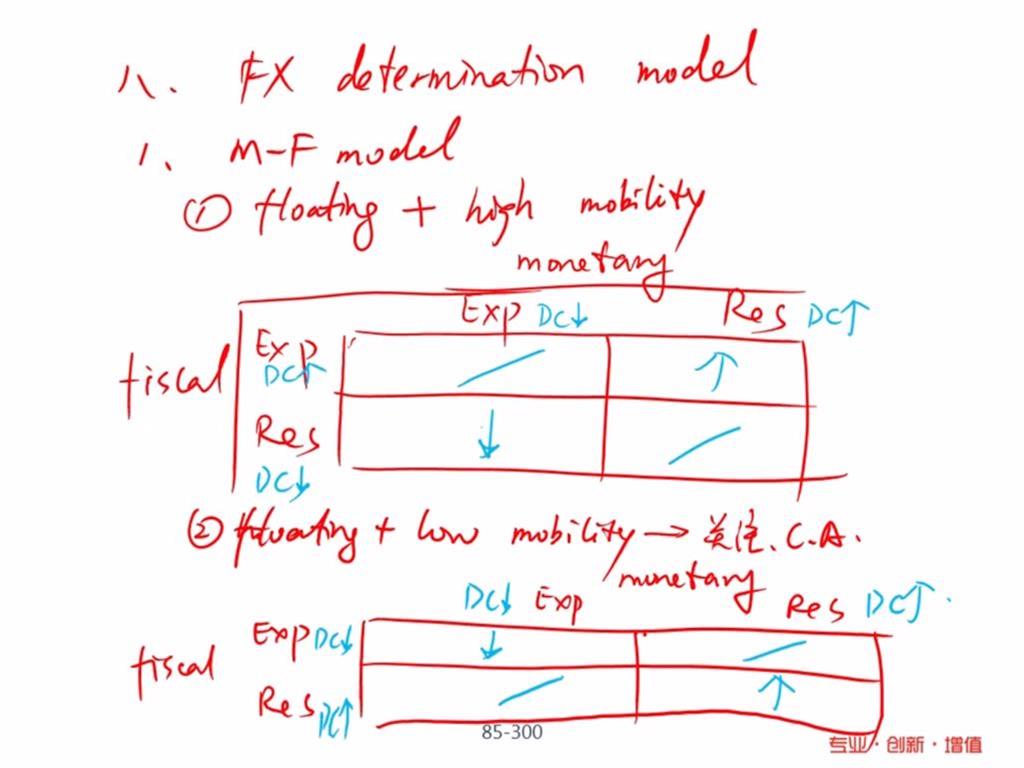 八. FX determination model
1. M-F model
① floating + high mobility
monetary
Exp DC↓ Res DC↑
fiscal Exp DC↑ ↑
Res DC↓ ↓
② floating + low mobility → 关注. C.A.
monetary
DC↓ Exp Res DC↑
fiscal Exp DC↓ ↓
Res DC↑ ↑
85-300
专业·创新·增值